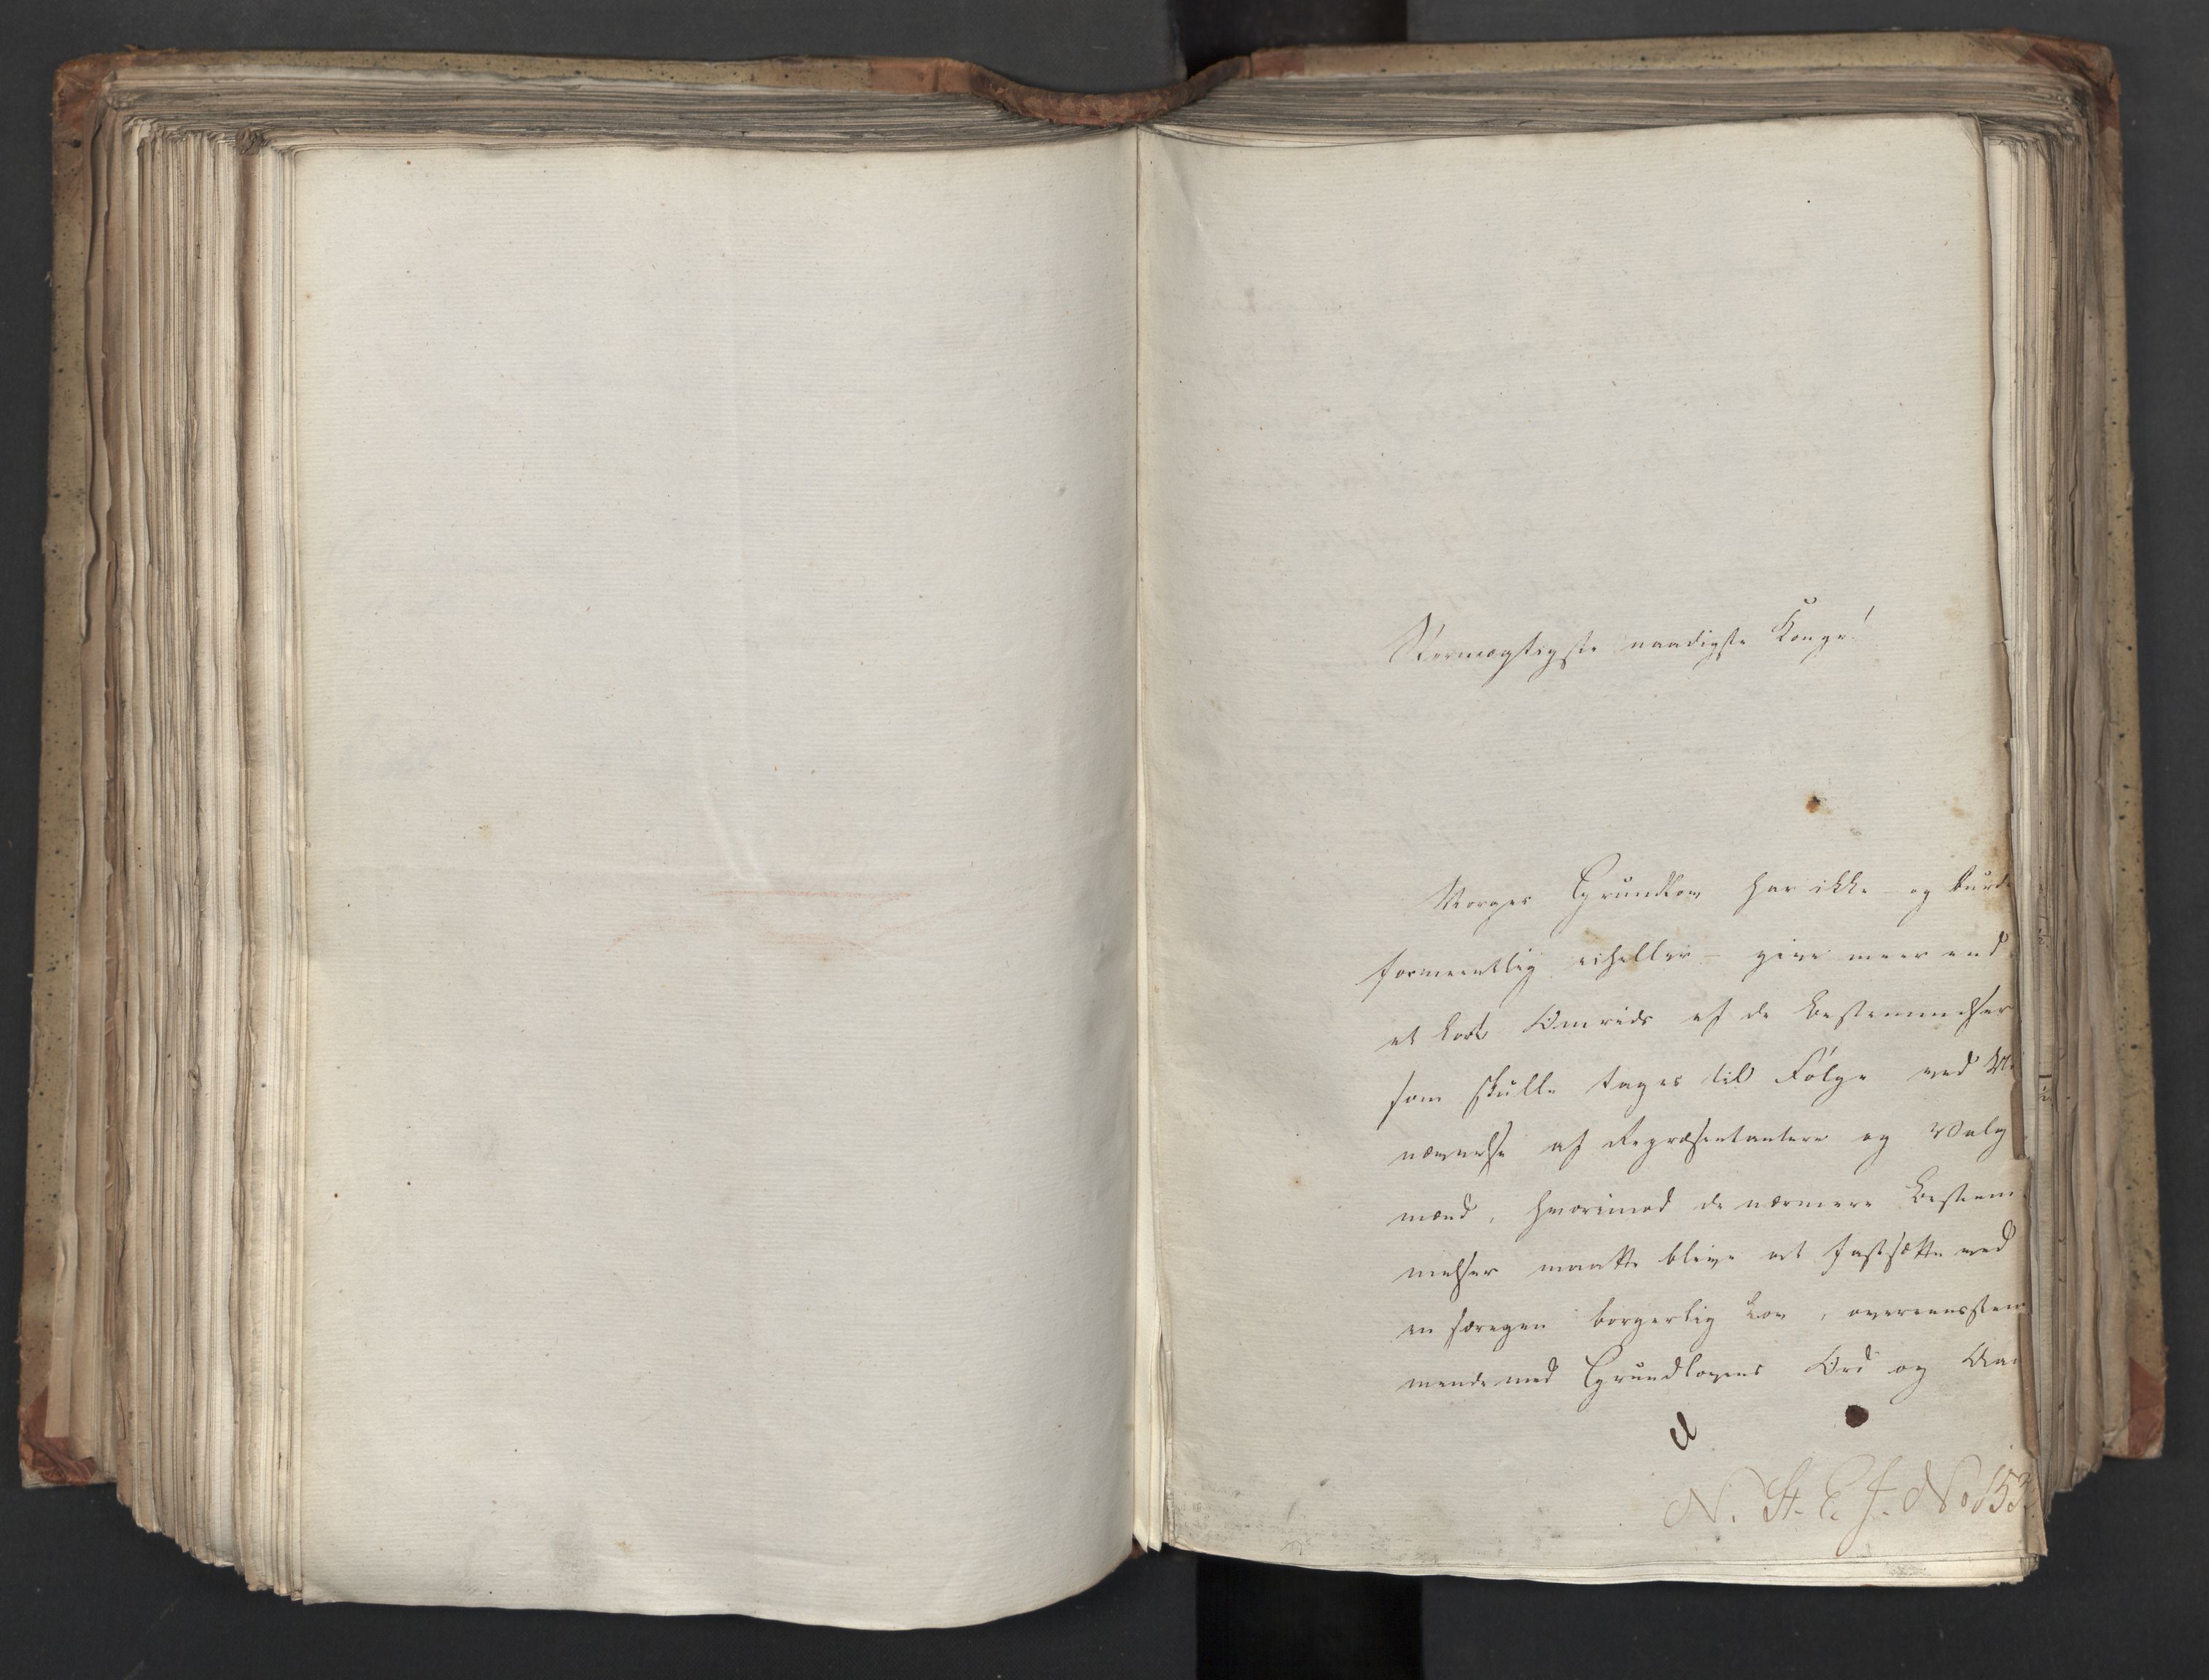 Stormægtigste naadigste Konge!
Norges Grundlov har ikke og burde
formeentlig eiheller – give meer end
et kort Omrids af de Bestemmelser
som skulle tages til Følge ved
nævnelse af Repræsentantere og Valg
mænd, hvorimod de nærmere Bestem
melser maatte blive at fastsætte ved
en særegen borgerlig Lov, overeensstem
mende med Grundlovens Ord og Aan
N. St. C. J. No 153